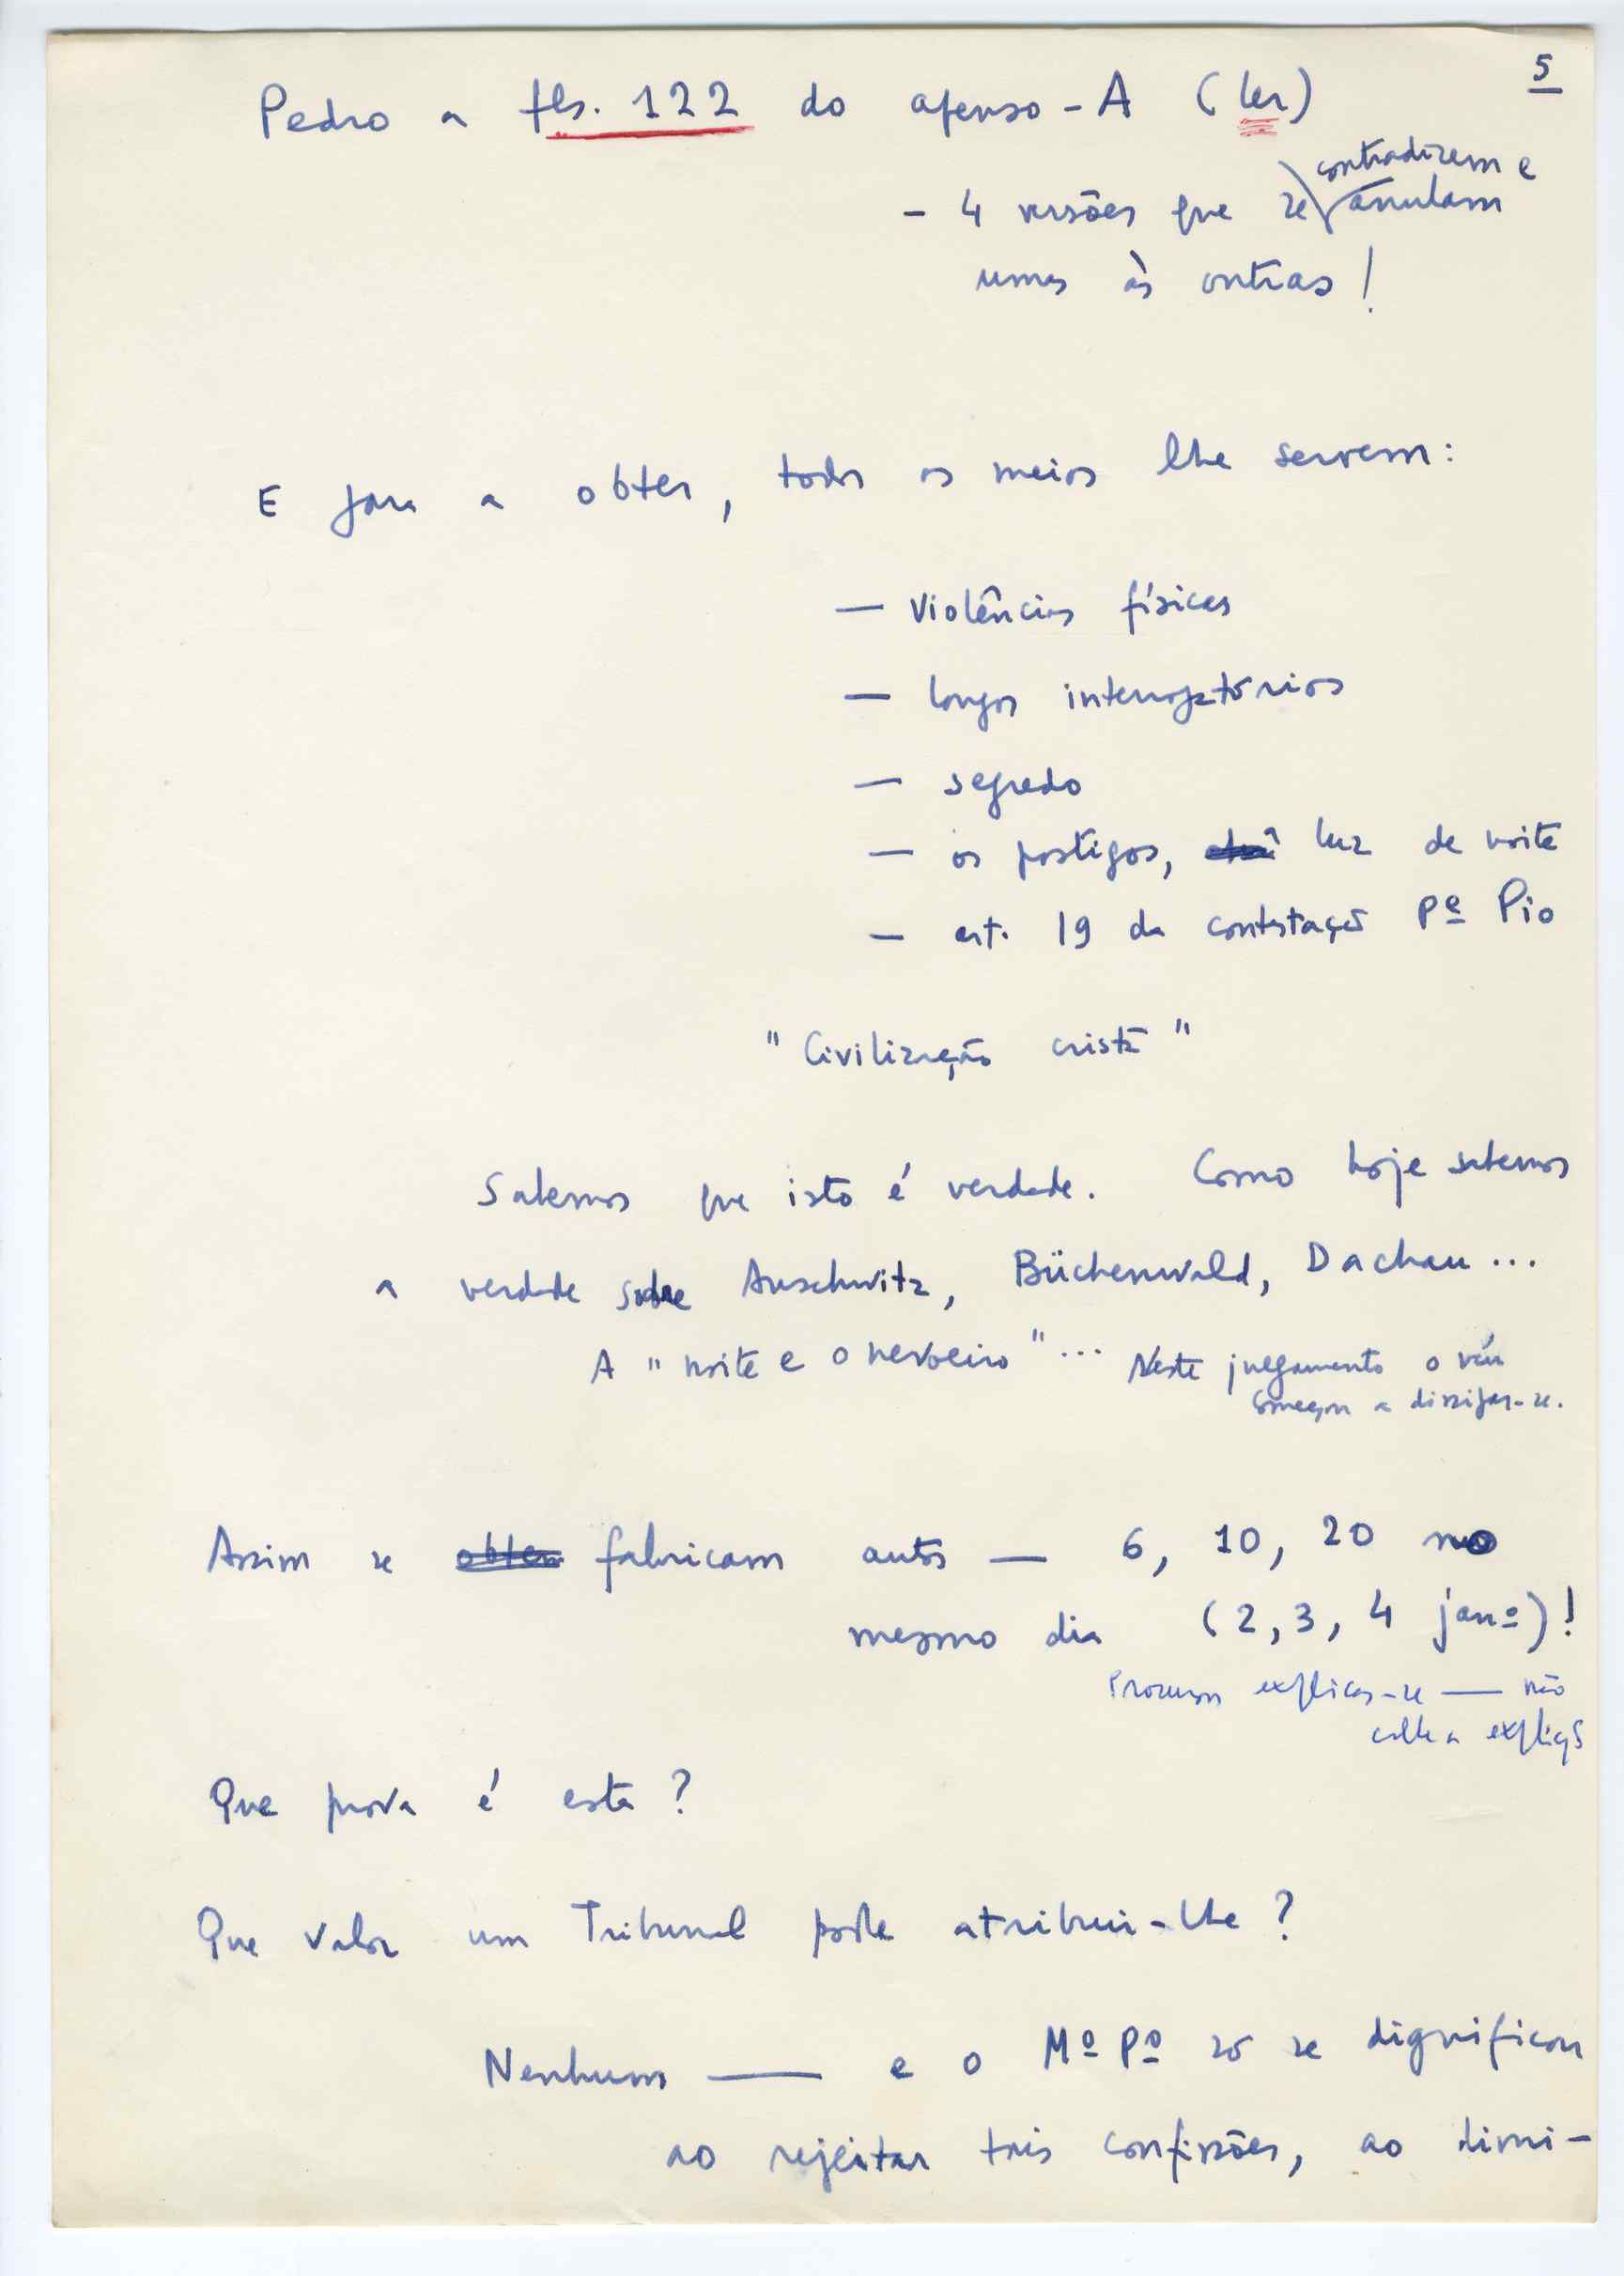 5
Pedro a fls. 122 do apenso-A (ler)
- 4 versões que se contradizem e anulam
umas às outras!
E para a obter, todos os meios lhe servem:
— violências físicas
— longos interrogatórios
— segredo
— os postigos, luz de noite
— art. 19 da contestaçõ Pe Pio
"Civilização cristã"
Sabemos que isto é verdade. Como hoje sabemos
a verdade sobre Auschwitz, Büchenwald, Dachau...
A "noite e o nevoeiro"... Neste julgamento o véu
começou a dissipar-se.
Assim se obtem fabricam autos — 6, 10, 20 no
mesmo dia (2, 3, 4 janº)!
Procurou explicar-se — não
colhe a explicaçõ
Que prova é esta?
Que valor um Tribunal pode atribuir-lhe?
Nenhum — e o Mº Pº só se dignificou
ao rejeitar tais confissões, ao dimi-